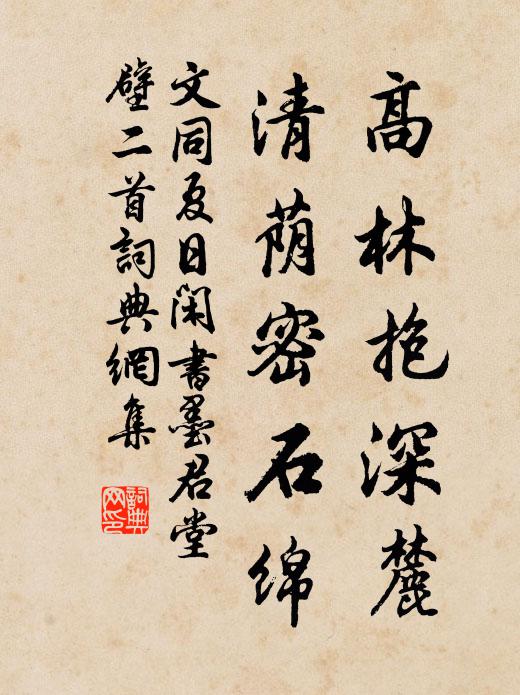 高林抱深麓
清荫密石绵
文同夏日閑書墨君堂
壁二首詞典網集
詞典网印